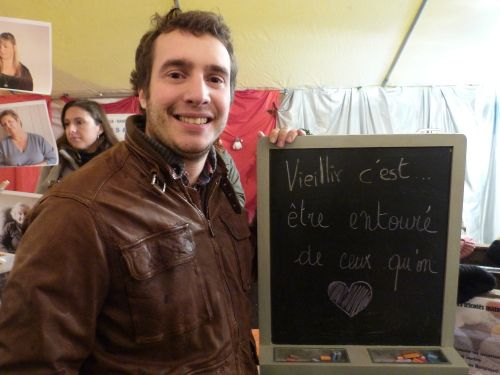 Vieillir c'est...
être entouré
de ceux qu'on